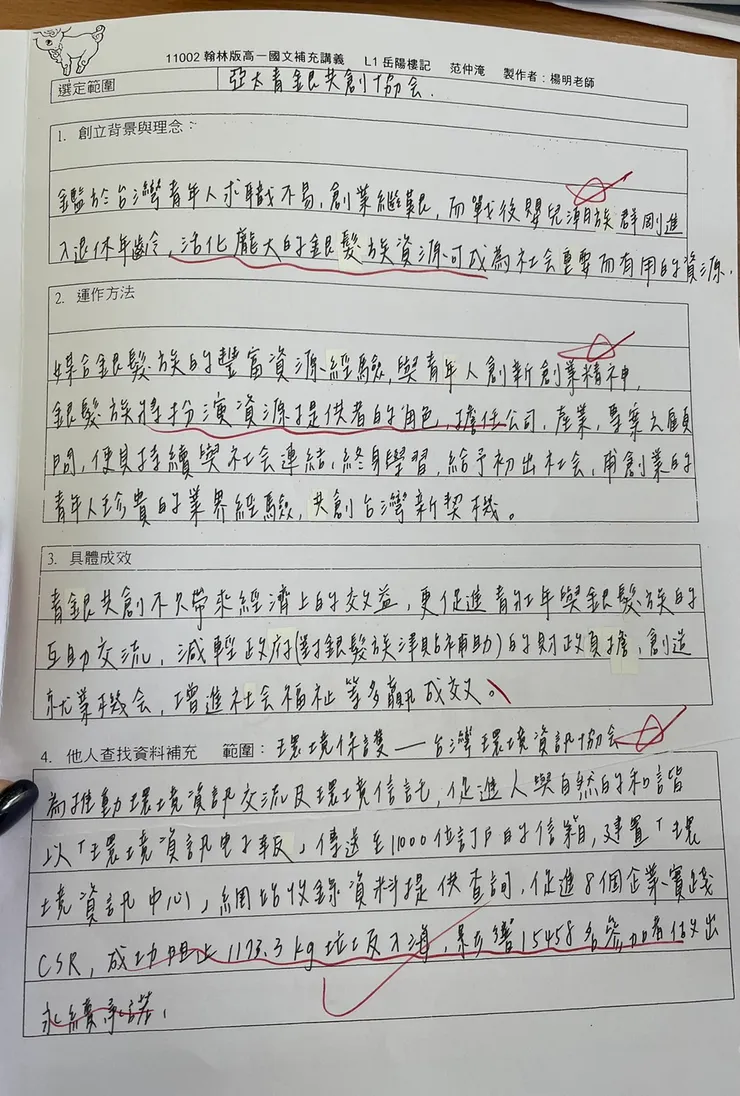 11002 翰林版高一國文補充講義 L1 岳陽樓記 范仲淹 製作者：楊明老師
選定範圍 亞太青銀共創協會.
1. 創立背景與理念：
鑑於台灣青年人求職不易，創業維艱，而戰後嬰兒潮族群剛進
入退休年齡，活化龐大的銀髮族資源可成為社會重要而有用的資源.
2. 運作方法
媒合銀髮族的豐富資源、經驗，與青年人創新創業精神，
銀髮族將扮演資源提供者的角色，擔任公司，產業，專案之顧
問，使其持續與社會連結，終身學習，給予初出社会，甫創業的
青年人珍貴的業界經驗，共創台灣新契機。
3. 具體成效
青銀共創不久帶來經濟上的效益，更促進青壯年與銀髮族的
互助交流，減輕政府(對銀髮族津貼補助)的財政負擔，創造
就業機会，增進社会福祉等多贏成效。
4. 他人查找資料補充 範圍：環境保護——台灣環境資訊協会
為推動環境資訊交流及環境信託，促進人與自然的和諧
以「環境資訊电子報」傳送至11000位訂戶的信箱，建置「環
境資訊中心」網站收錄資料提供查詢，促進8個企業實踐
CSR，成功阻止1173.3kg垃圾入海，累積15458名參加者做出
永續承諾.